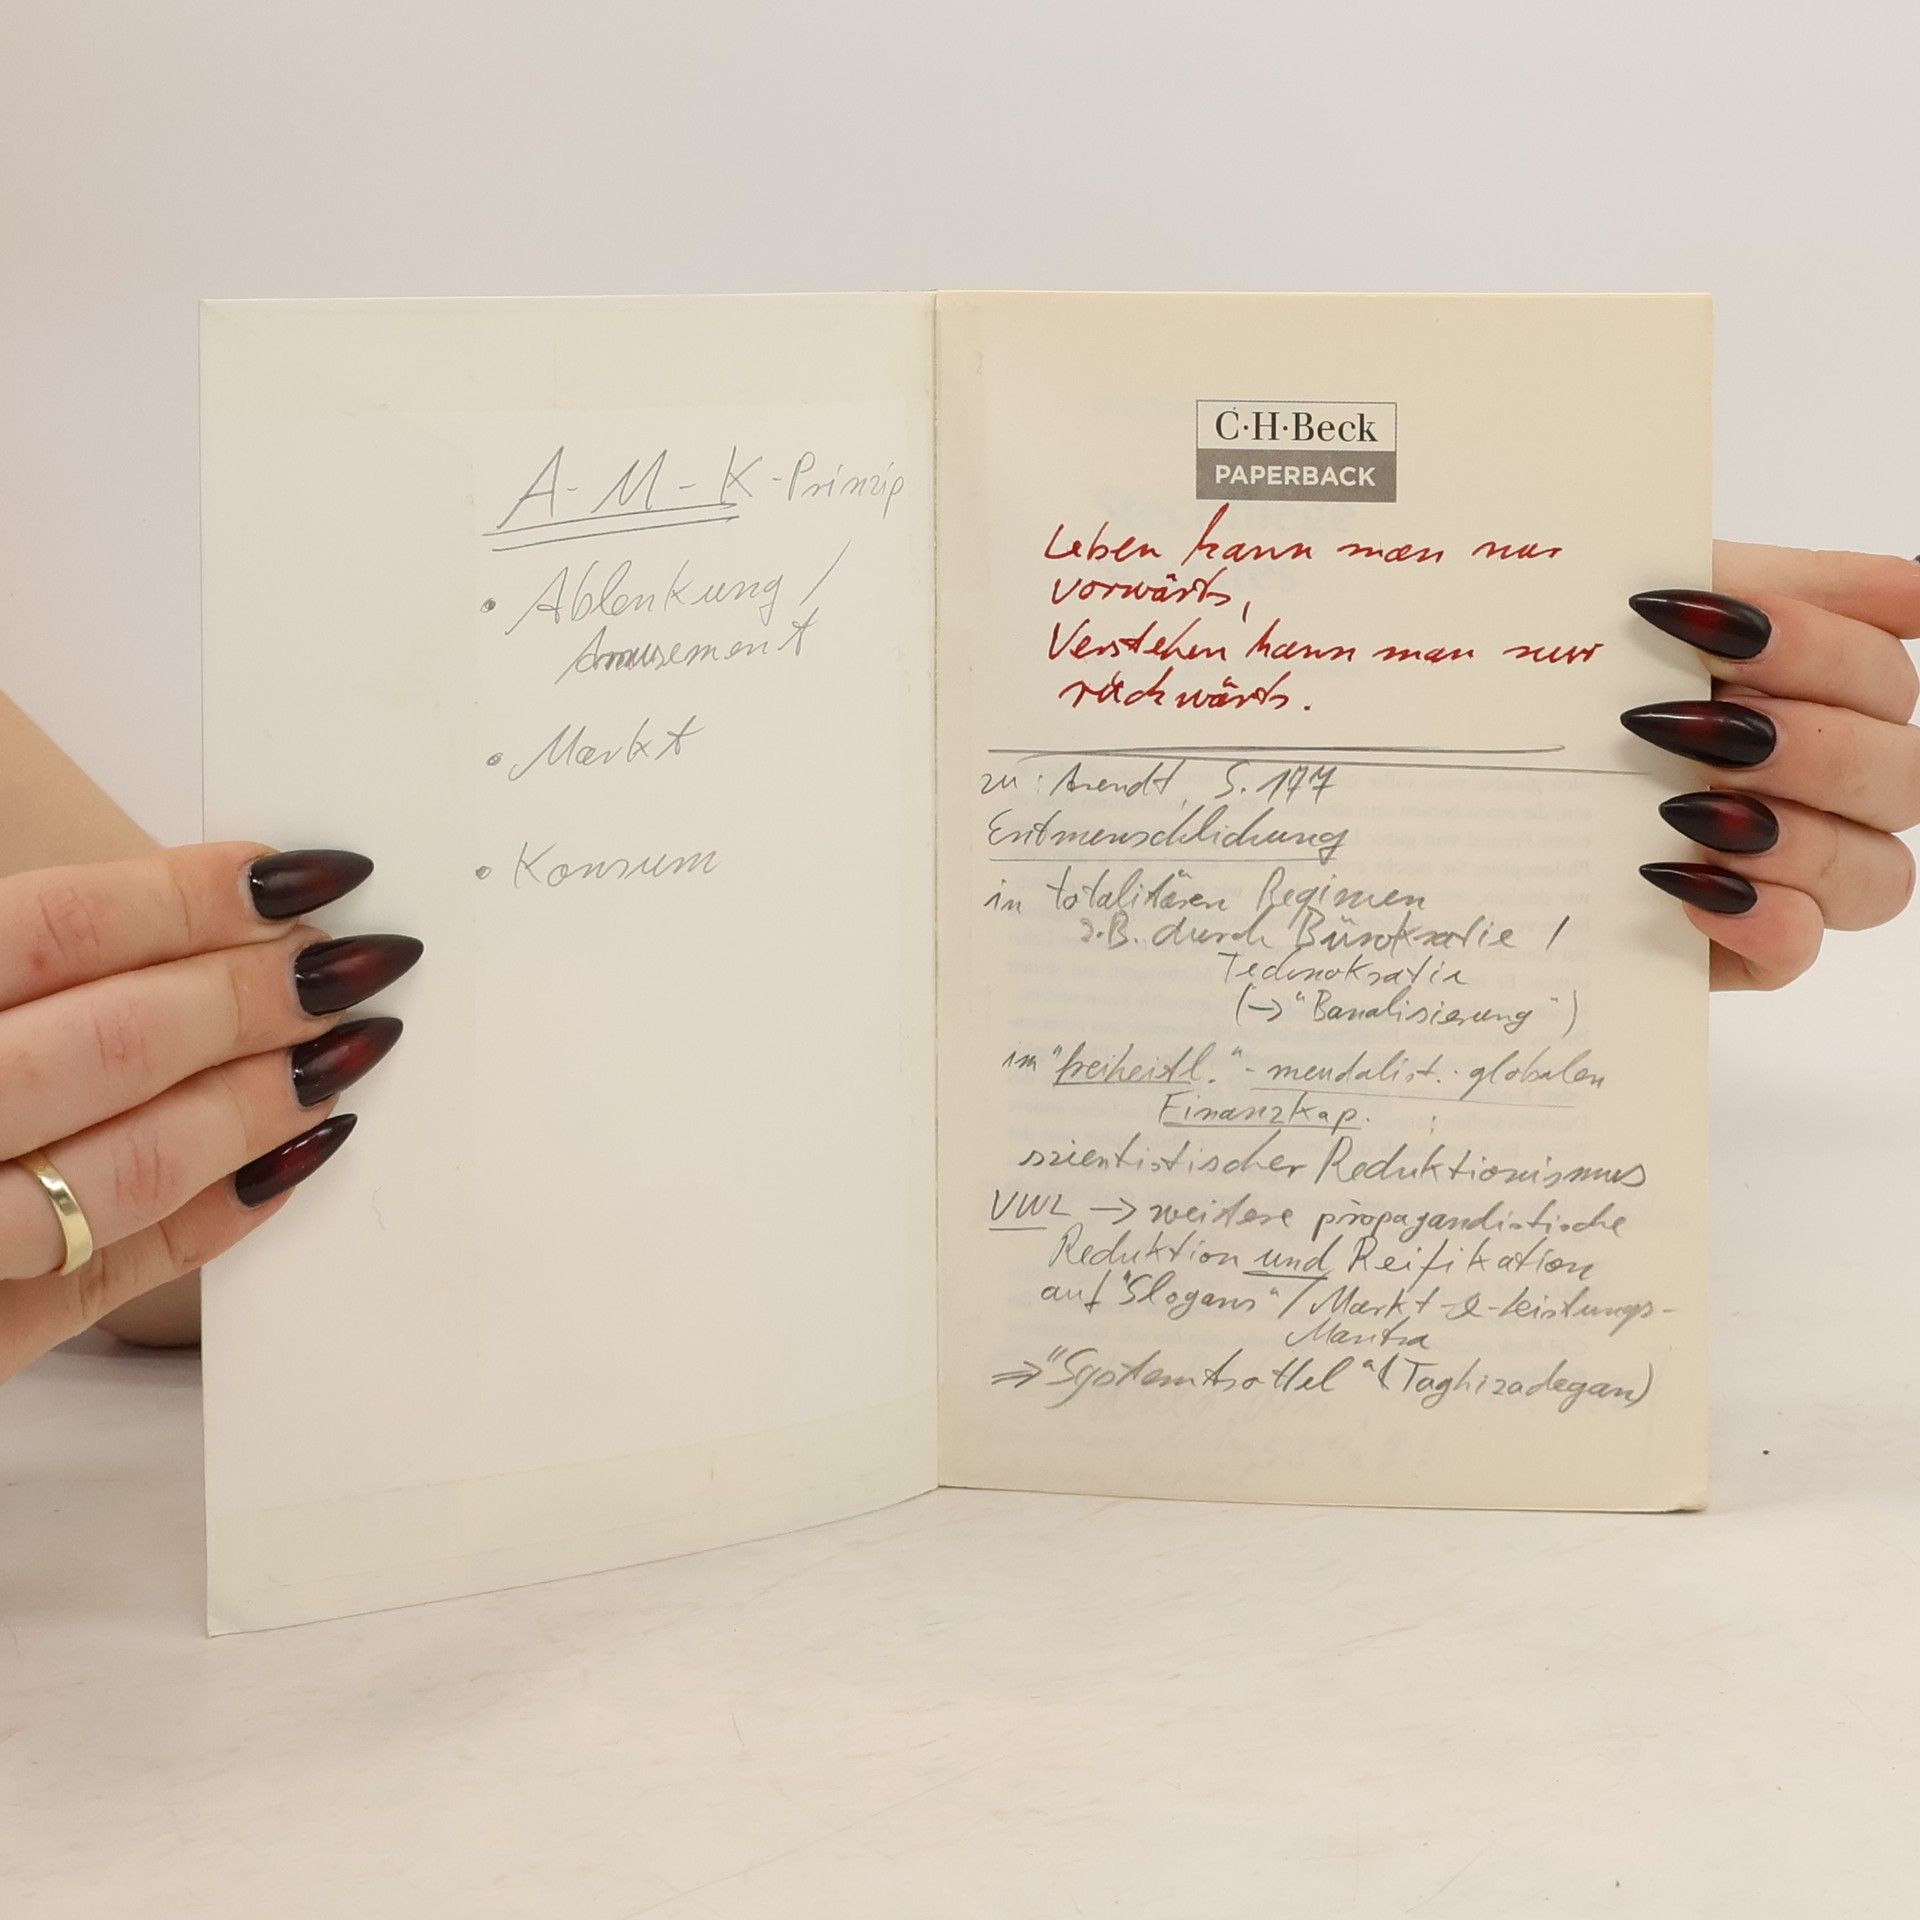 A-M-K-Prinzip
• Ablenkung /
Amusement
• Markt
• Konsum
C·H·Beck
PAPERBACK
Leben kann man nur
vorwärts,
Verstehen kann man nur
rückwärts.
zu: Arendt, S. 177
Entmenschlichung
in totalitären Regimen
z.B. durch Bürokratie /
Technokratie
(→ "Banalisierung")
im "freiheitl."-mendalist.-globalen
Finanzkap. :
szientistischer Reduktionismus
VWL → weitere propagandistische
Reduktion und Reifikation
auf "Slogans" / Markt-&-Leistungs-
Mantra
⇒ "Systemtrottel" (Taghizadegan)